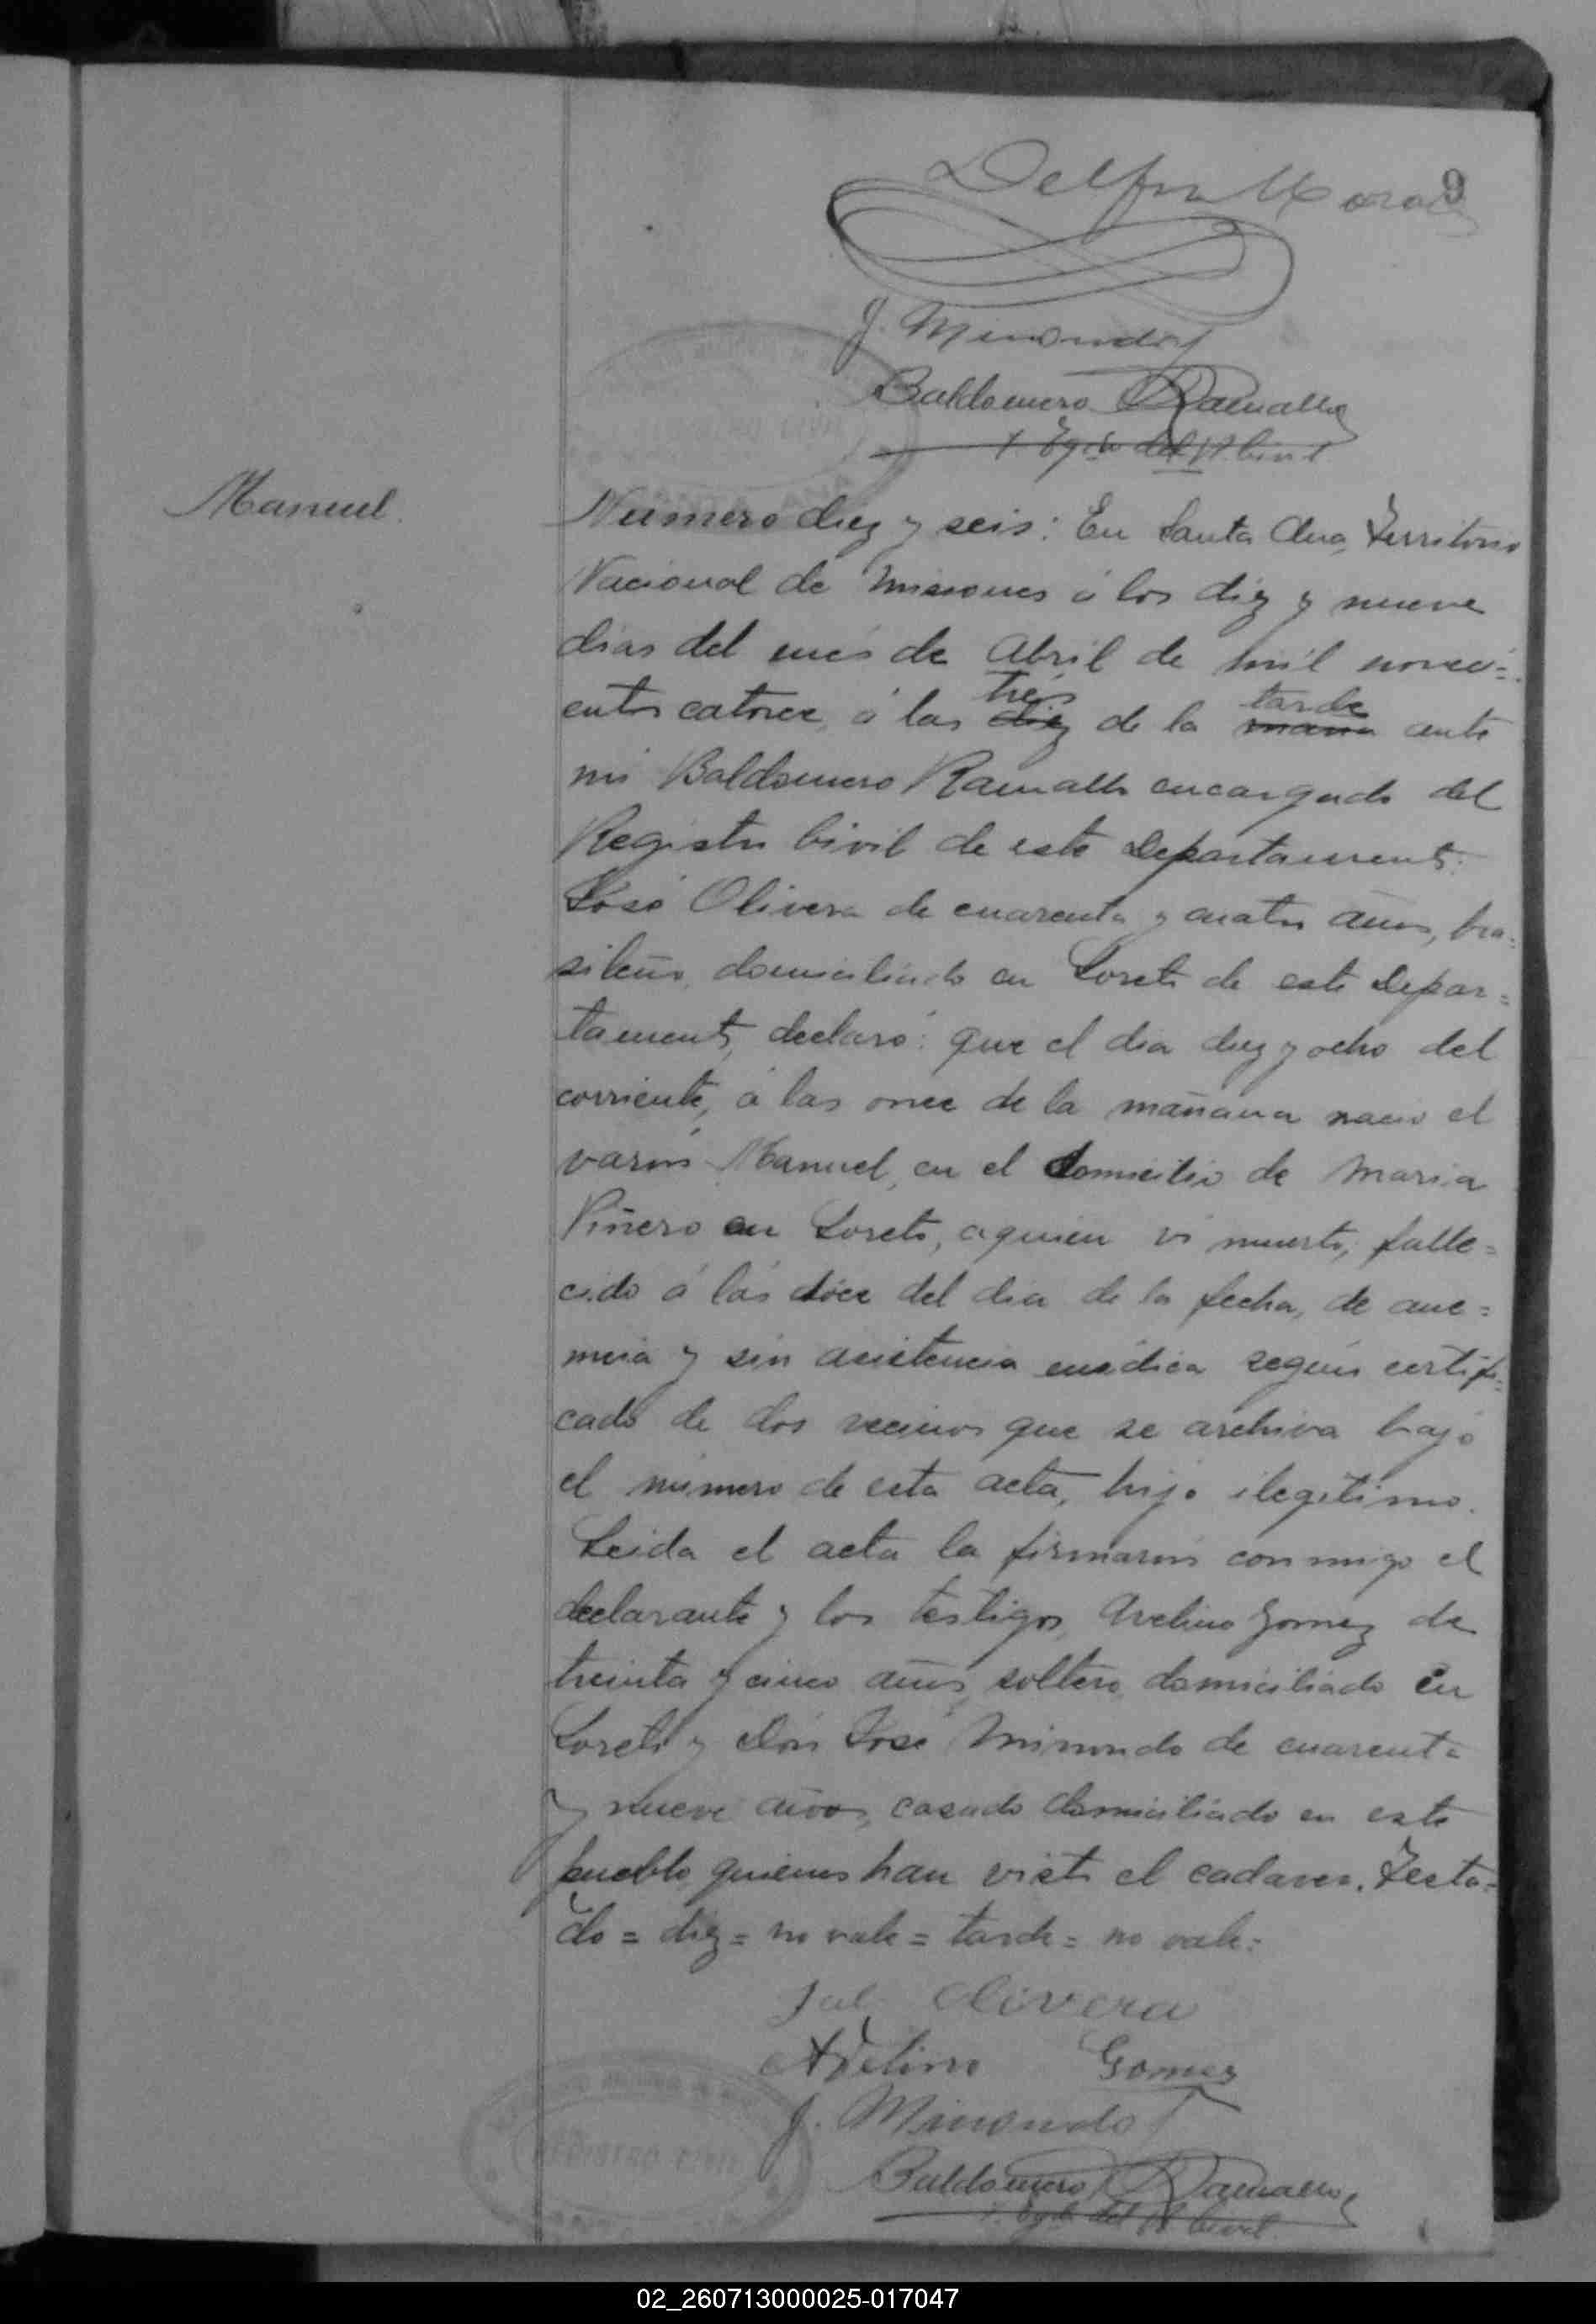 9
Delfin Mora
J. Minondo
Baldomero Ramallo
Manuel.
Número diez y seis: En Santa Ana, Territorio
Nacional de Misiones á los diez y nueve
dias del mes de Abril de mil noveci=
entos catorce, á las diez tres de la mana tarde ante
mi Baldomero Ramallo encargado del
Registro Civil de este Departamento:
José Olivera de cuarenta y cuatro años, bra=
sileño, domiciliado en Loreto de este Depar=
tamento, declaró: que el dia diez y ocho del
corriente, á las once de la mañana nació el
varón Manuel, en el domicilio de Maria
Piñero en Loreto, aquien vi muerto, falle=
cido á las doce del dia de la fecha, de ane=
mia y sin asistencia medica según certifi=
cado de dos vecinos que se archiva bajo
el número de esta acta, hijo ilegitimo.
Leida el acta la firmarón conmigo el
declarante y los testigos, Avelino Gomez de
treinta y cinco años, soltero, domiciliado en
Loreto y Don José Minondo de cuarenta
y nueve años, casado domiciliado en este
pueblo, quienes han visto el cadaver. Testa=
do = diez = no vale = tarde = no vale =
Olivera
Avelino Gomez
J. Minondo
Baldomero Ramallo
REGISTRO CIVIL
02_260713000025-017047